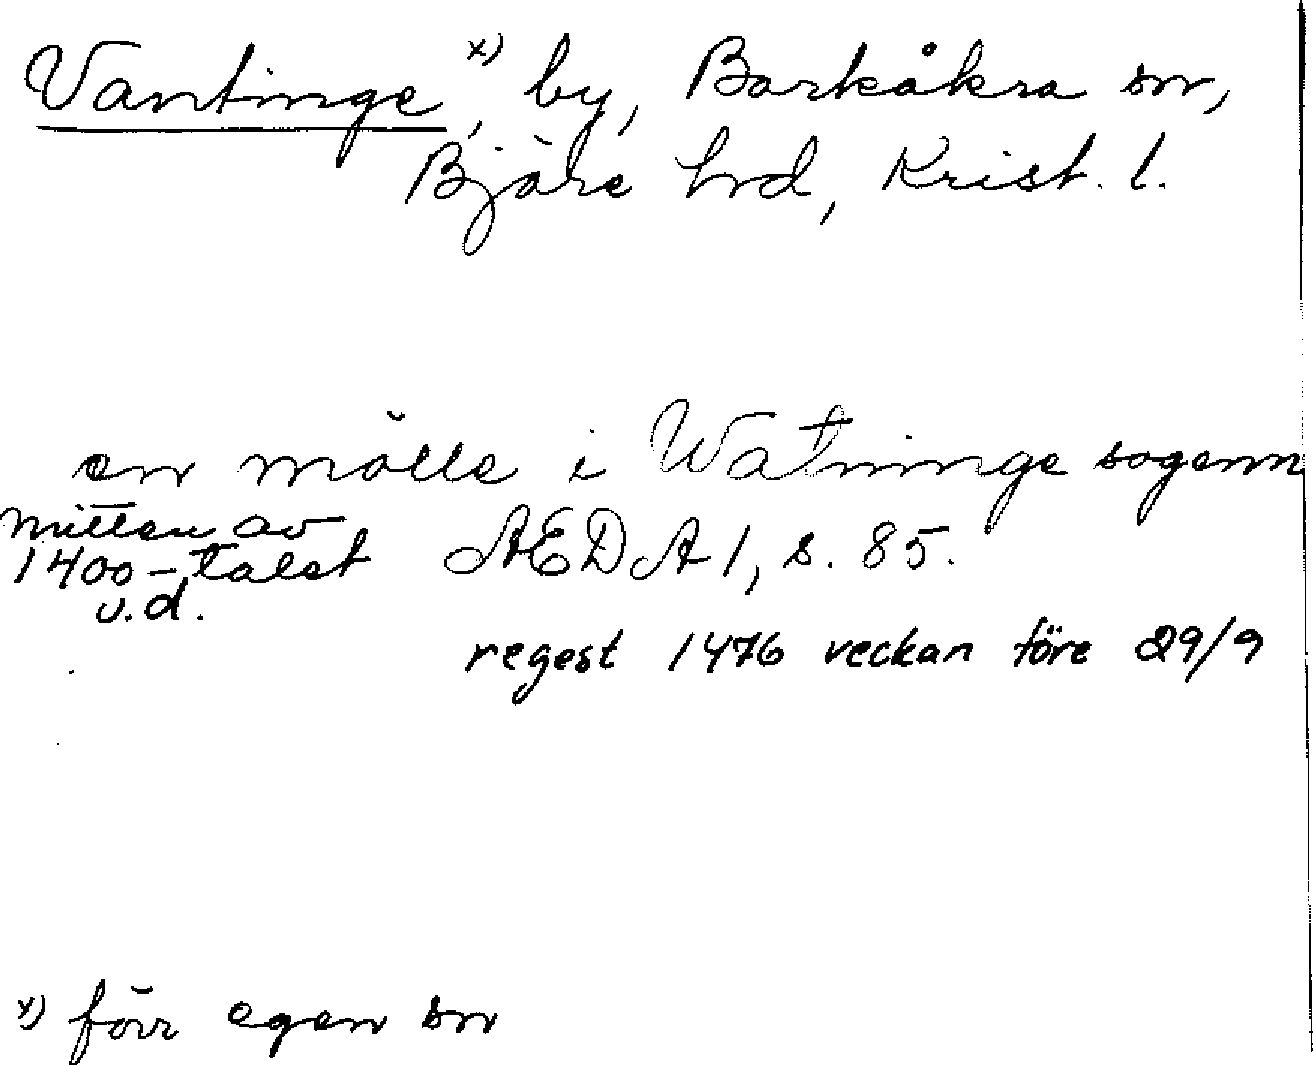 Vantinge,ˣ⁾ by, Barkåkra sn,
Bjäre hrd, Krist. l.
en mölle i Watninge sogenn
mitten av
1400-talet AEDA 1, s. 85.
u.d.
regest 1476 veckan före 29/9
x) förr egen sn